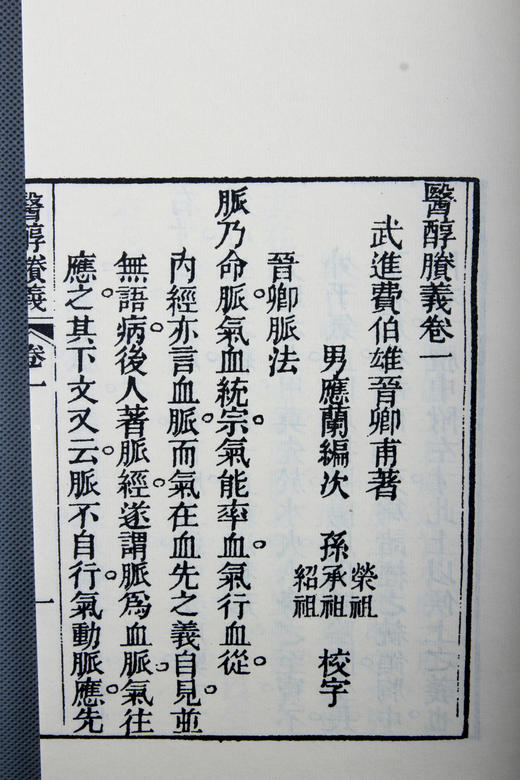 醫醇賸義卷一
武進費伯雄晉卿甫著
男應蘭編次 孫 榮祖 承祖 紹祖 校字
晉卿脈法
脈乃命脈氣血統宗氣能率血氣行血從
內經亦言血脈而氣在血先之義自見並
無語病後人著脈經遂謂脈為血脈氣往
應之其下文又云脈不自行氣動脈應先
醫醇賸義 卷一 一